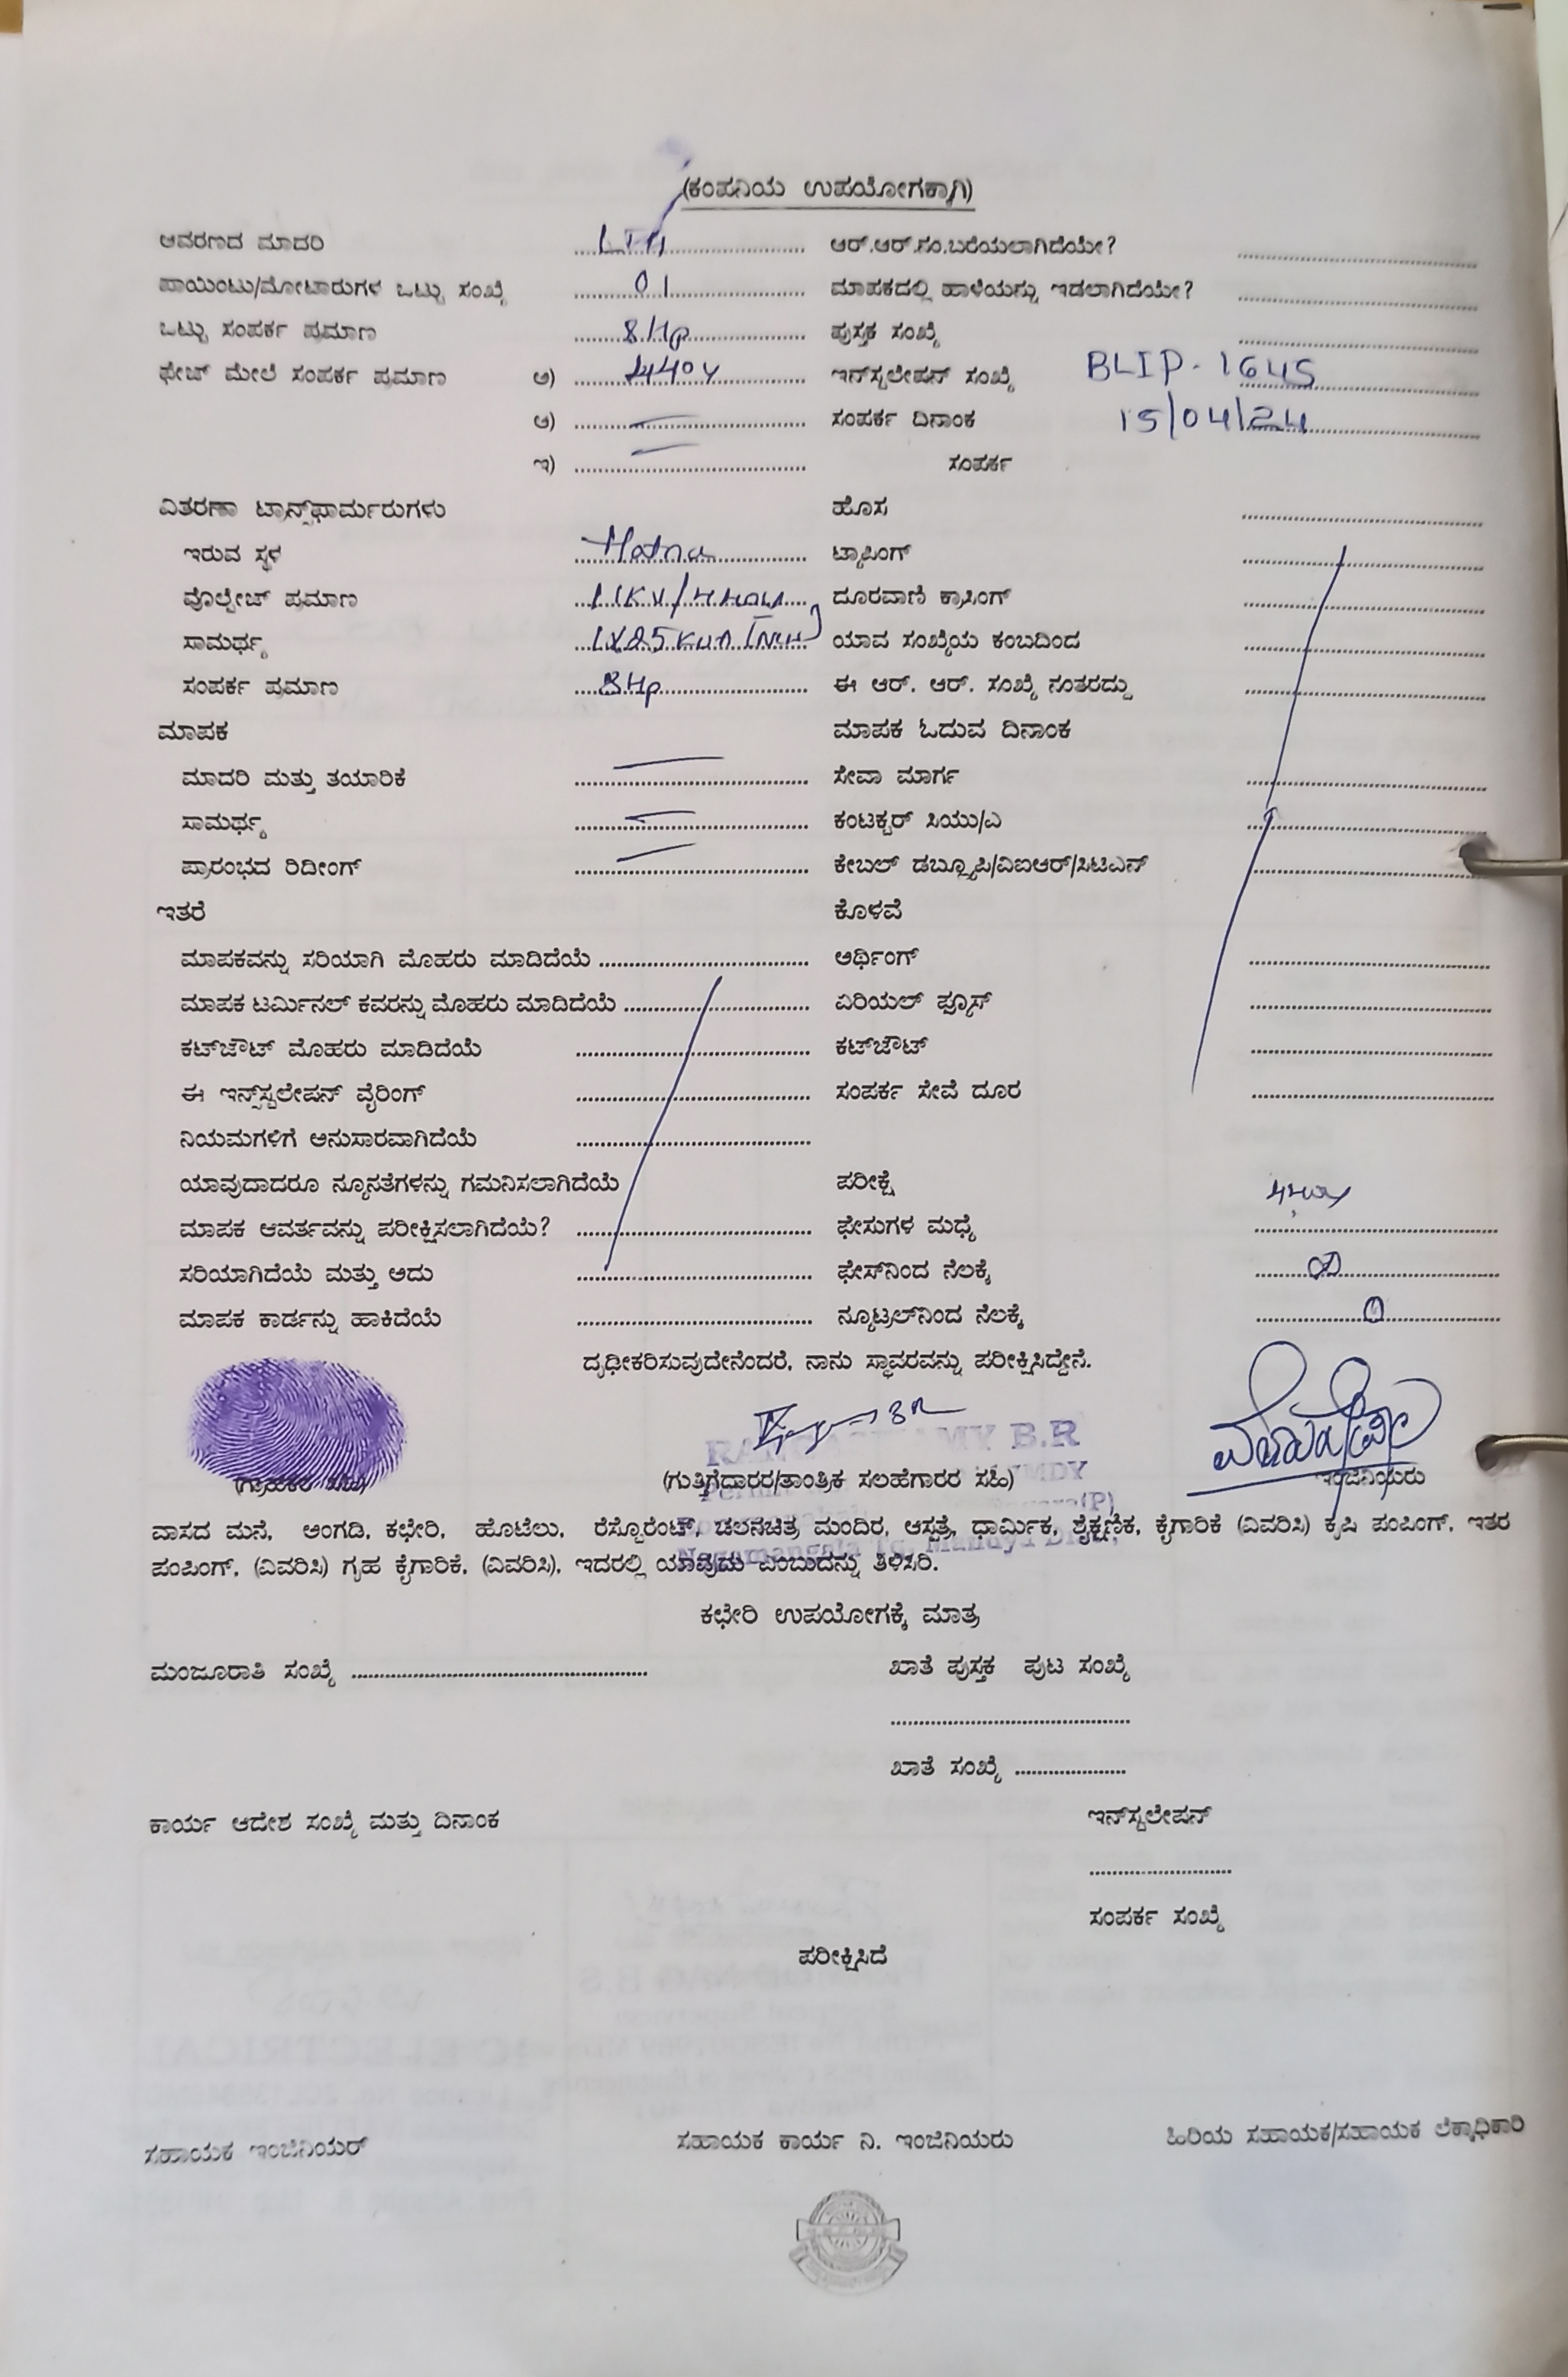 (ಕಂಪನಿಯ ಉಪಯೋಗಕ್ಕಾಗಿ)
ಆವರಣದ ಮಾದರಿ ಆರ್.ಆರ್.ಸಂ.ಬರೆಯಲಾಗಿದೆಯೇ?
ಪಾಯಿಂಟು/ಮೋಟಾರುಗಳ ಒಟ್ಟು ಸಂಖ್ಯೆ 01 ಮಾಪಕದಲ್ಲಿ ಹಾಳೆಯನ್ನು ಇಡಲಾಗಿದೆಯೇ?
ಒಟ್ಟು ಸಂಪರ್ಕ ಪ್ರಮಾಣ 8Hp ಪುಸ್ತಕ ಸಂಖ್ಯೆ
ಫೇಜ್ ಮೇಲೆ ಸಂಪರ್ಕ ಪ್ರಮಾಣ ಅ) 440V ಇನ್‌ಸ್ಟಲೇಷನ್ ಸಂಖ್ಯೆ BLIP-1645
ಆ) ಸಂಪರ್ಕ ದಿನಾಂಕ 15/04/24
ಇ) ಸಂಪರ್ಕ
ವಿತರಣಾ ಟ್ರಾನ್ಸ್‌ಫಾರ್ಮರುಗಳು ಹೊಸ
ಇರುವ ಸ್ಥಳ Hatna ಟ್ಯಾಪಿಂಗ್
ವೊಲ್ಟೇಜ್ ಪ್ರಮಾಣ 11KV/440V ದೂರವಾಣಿ ಕ್ರಾಸಿಂಗ್
ಸಾಮರ್ಥ್ಯ 1X25KVA ಯಾವ ಸಂಖ್ಯೆಯ ಕಂಬದಿಂದ
ಸಂಪರ್ಕ ಪ್ರಮಾಣ 8Hp ಈ ಆರ್. ಆರ್. ಸಂಖ್ಯೆ ನಂತರದ್ದು
ಮಾಪಕ ಮಾಪಕ ಓದುವ ದಿನಾಂಕ
ಮಾದರಿ ಮತ್ತು ತಯಾರಿಕೆ ಸೇವಾ ಮಾರ್ಗ
ಸಾಮರ್ಥ್ಯ ಕಂಟಕ್ಟರ್ ಸಿಯು/ಎ
ಪ್ರಾರಂಭದ ರಿದೀಂಗ್ ಕೇಬಲ್ ಡಬ್ಲ್ಯೂಪಿ/ವಿಐಆರ್/ಸಿಟಿಎನ್
ಇತರೆ ಕೊಳವೆ
ಮಾಪಕವನ್ನು ಸರಿಯಾಗಿ ಮೊಹರು ಮಾಡಿದೆಯೆ ಅರ್ಥಿಂಗ್
ಮಾಪಕ ಟರ್ಮಿನಲ್ ಕವರನ್ನು ಮೊಹರು ಮಾಡಿದೆಯೆ ಏರಿಯಲ್ ಫ್ಯೂಸ್
ಕಟ್‌ಔಟ್ ಮೊಹರು ಮಾಡಿದೆಯೆ ಕಟ್‌ಔಟ್
ಈ ಇನ್ಸ್‌ಸ್ಟಲೇಷನ್ ವೈರಿಂಗ್ ಸಂಪರ್ಕ ಸೇವೆ ದೂರ
ನಿಯಮಗಳಿಗೆ ಅನುಸಾರವಾಗಿದೆಯೆ
ಯಾವುದಾದರೂ ನ್ಯೂನತೆಗಳನ್ನು ಗಮನಿಸಲಾಗಿದೆಯೆ ಪರೀಕ್ಷೆ
ಮಾಪಕ ಆವರ್ತವನ್ನು ಪರೀಕ್ಷಿಸಲಾಗಿದೆಯೆ? ಫೇಸುಗಳ ಮಧ್ಯೆ 440V
ಸರಿಯಾಗಿದೆಯೆ ಮತ್ತು ಅದು ಫೇಸ್‌ನಿಂದ ನೆಲಕ್ಕೆ
ಮಾಪಕ ಕಾರ್ಡನ್ನು ಹಾಕಿದೆಯೆ ನ್ಯೂಟ್ರಲ್‌ನಿಂದ ನೆಲಕ್ಕೆ 0
ದೃಢೀಕರಿಸುವುದೇನೆಂದರೆ, ನಾನು ಸ್ಥಾವರವನ್ನು ಪರೀಕ್ಷಿಸಿದ್ದೇನೆ.
B.R
(ಗ್ರಾಹಕರ ಸಹಿ) (ಗುತ್ತಿಗೆದಾರರ/ತಾಂತ್ರಿಕ ಸಲಹೆಗಾರರ ಸಹಿ) ಇಂಜಿನಿಯರು
ವಾಸದ ಮನೆ, ಅಂಗಡಿ, ಕಛೇರಿ, ಹೊಟೆಲು, ರೆಸ್ಟೊರೆಂಟ್, ಚಲನಚಿತ್ರ ಮಂದಿರ, ಆಸ್ಪತ್ರೆ, ಧಾರ್ಮಿಕ, ಶೈಕ್ಷಣಿಕ, ಕೈಗಾರಿಕೆ (ವಿವರಿಸಿ) ಕೃಷಿ ಪಂಪಿಂಗ್, ಇತರ
Nagamangala Tq, Mandya Dist,
ಪಂಪಿಂಗ್, (ವಿವರಿಸಿ) ಗೃಹ ಕೈಗಾರಿಕೆ, (ವಿವರಿಸಿ), ಇದರಲ್ಲಿ ಯಾವುದು ಎಂಬುದನ್ನು ತಿಳಿಸಿರಿ.
ಕಛೇರಿ ಉಪಯೋಗಕ್ಕೆ ಮಾತ್ರ
ಮಂಜೂರಾತಿ ಸಂಖ್ಯೆ ಖಾತೆ ಪುಸ್ತಕ ಪುಟ ಸಂಖ್ಯೆ
ಖಾತೆ ಸಂಖ್ಯೆ
ಕಾರ್ಯ ಆದೇಶ ಸಂಖ್ಯೆ ಮತ್ತು ದಿನಾಂಕ ಇನ್‌ಸ್ಟಲೇಷನ್
ಸಂಪರ್ಕ ಸಂಖ್ಯೆ
ಪರೀಕ್ಷಿಸಿದೆ
ಸಹಾಯಕ ಇಂಜಿನಿಯರ್ ಸಹಾಯಕ ಕಾರ್ಯ ನಿ. ಇಂಜಿನಿಯರು ಹಿರಿಯ ಸಹಾಯಕ/ಸಹಾಯಕ ಲೆಕ್ಕಾಧಿಕಾರಿ